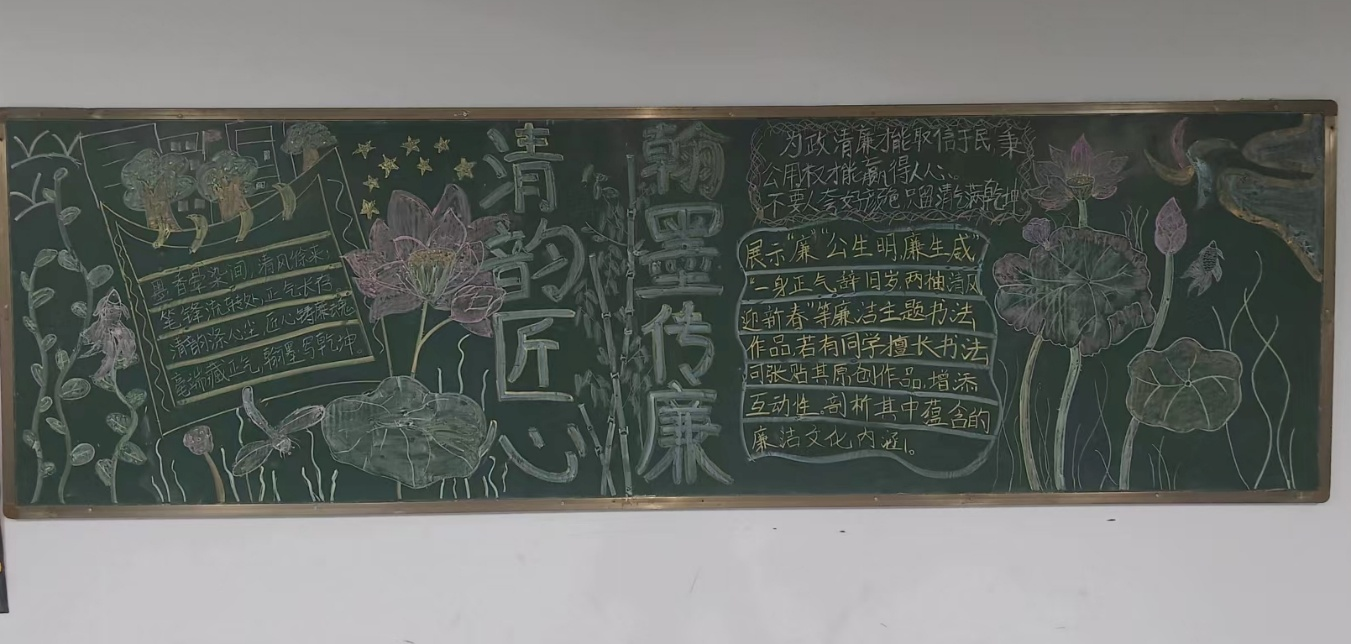 墨香晕染间,清风徐来;
笔锋流转处,正气永存。
清韵涤心尘 匠心铸廉魂
毫端藏正气 翰墨写乾坤。
清韵匠心
翰墨传廉
为政清廉才能取信于民,秉
公用权才能赢得人心。
不要人夸好颜色 只留清气满乾坤
展示“廉”“公生明,廉生威
“一身正气辞旧岁,两袖清风
迎新春”等廉洁主题书法
作品,若有同学擅长书法
可张贴其原创作品,增添
互动性。剖析其中蕴含的
廉洁文化内涵。